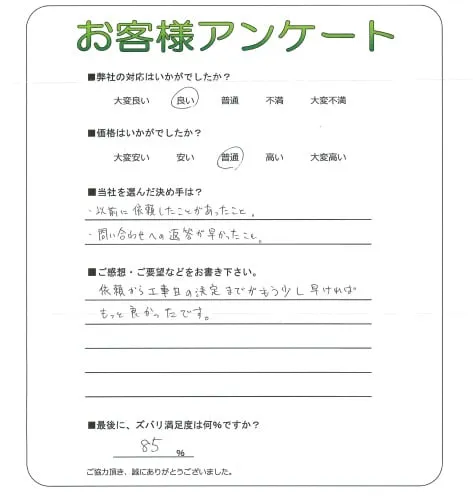 お客様アンケート
■弊社の対応はいかがでしたか？
大変良い 良い 普通 不満 大変不満
■価格はいかがでしたか？
大変安い 安い 普通 高い 大変高い
■当社を選んだ決め手は？
・以前に依頼したことがあったこと。
・問い合わせへの返答が早かったこと。
■ご感想・ご要望などをお書き下さい。
依頼から工事日の決定までがもう少し早ければ
もっと良かったです。
■最後に、ズバリ満足度は何％ですか？
85 ％
ご協力頂き、誠にありがとうございました。